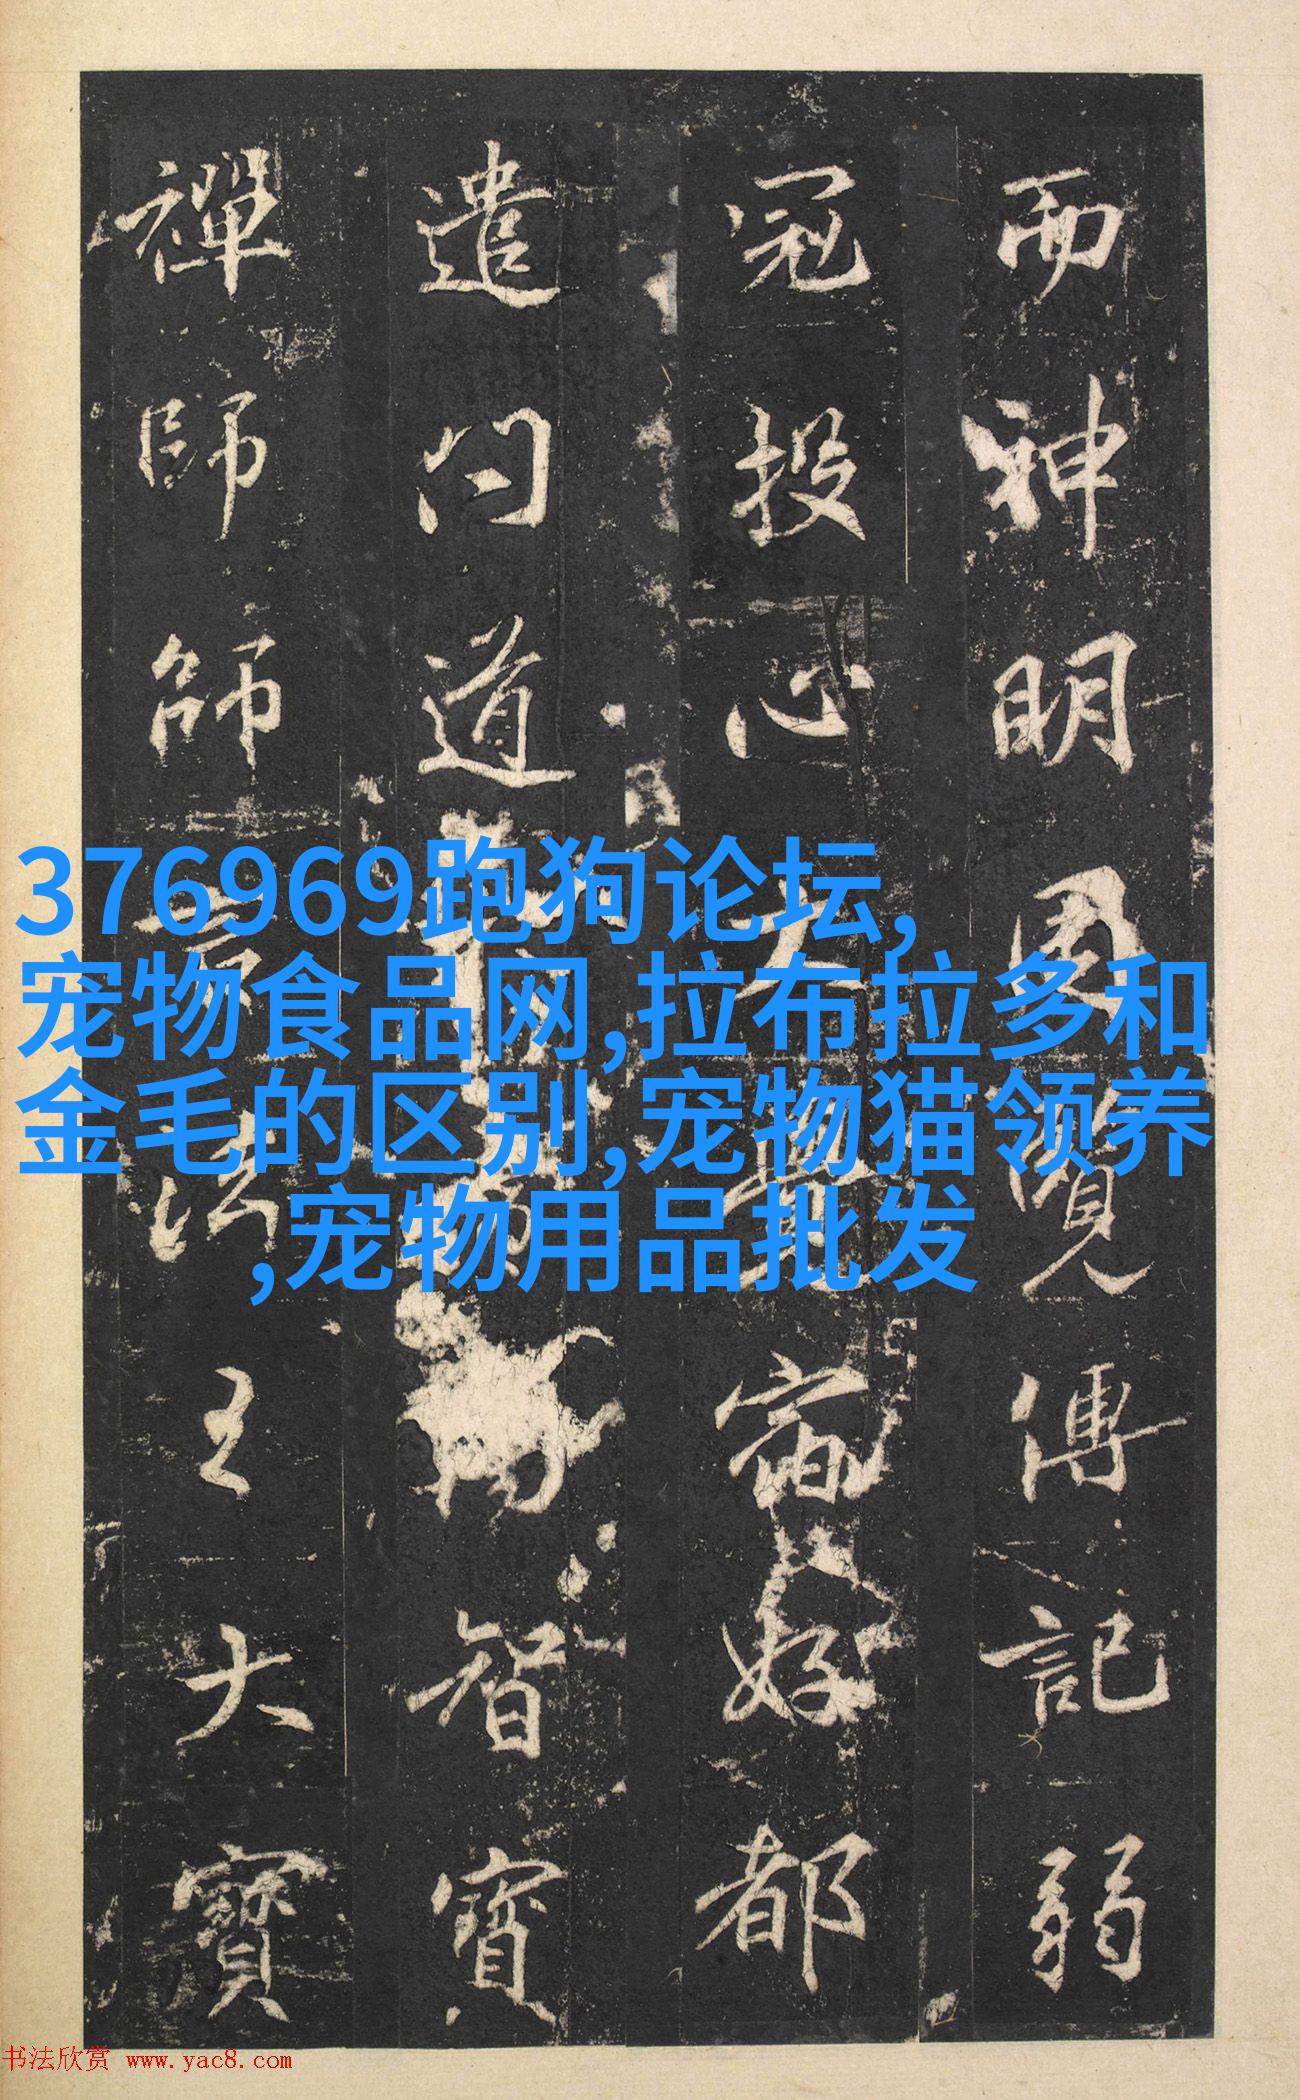 而神明周覽傳記弱
冠投心大覺甯好都
遣問道智
禪師師言法王大寶
376969跑狗论坛,
宠物食品网,拉布拉多和
金毛的区别,宠物猫领养
,宠物用品批发
书法欣赏 www.yac8.com